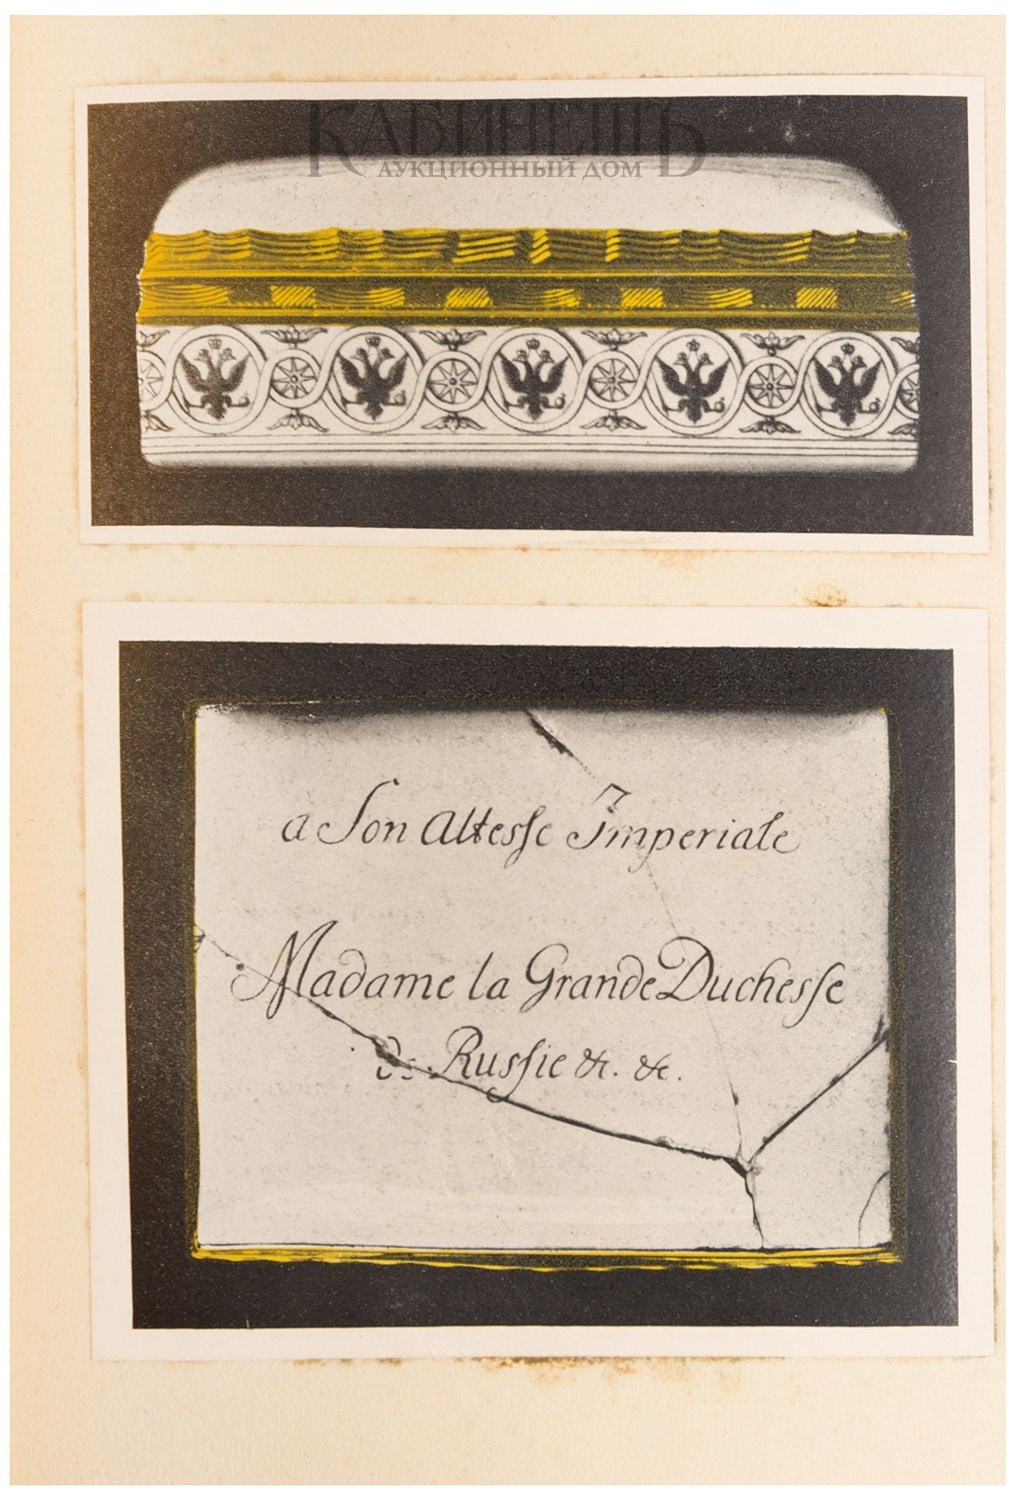 КАБИНЕТЪ
АУКЦИОННЫЙ ДОМ
a Son Altesse Imperiale
Madame la Grande Duchesse
de Russie &c. &c.